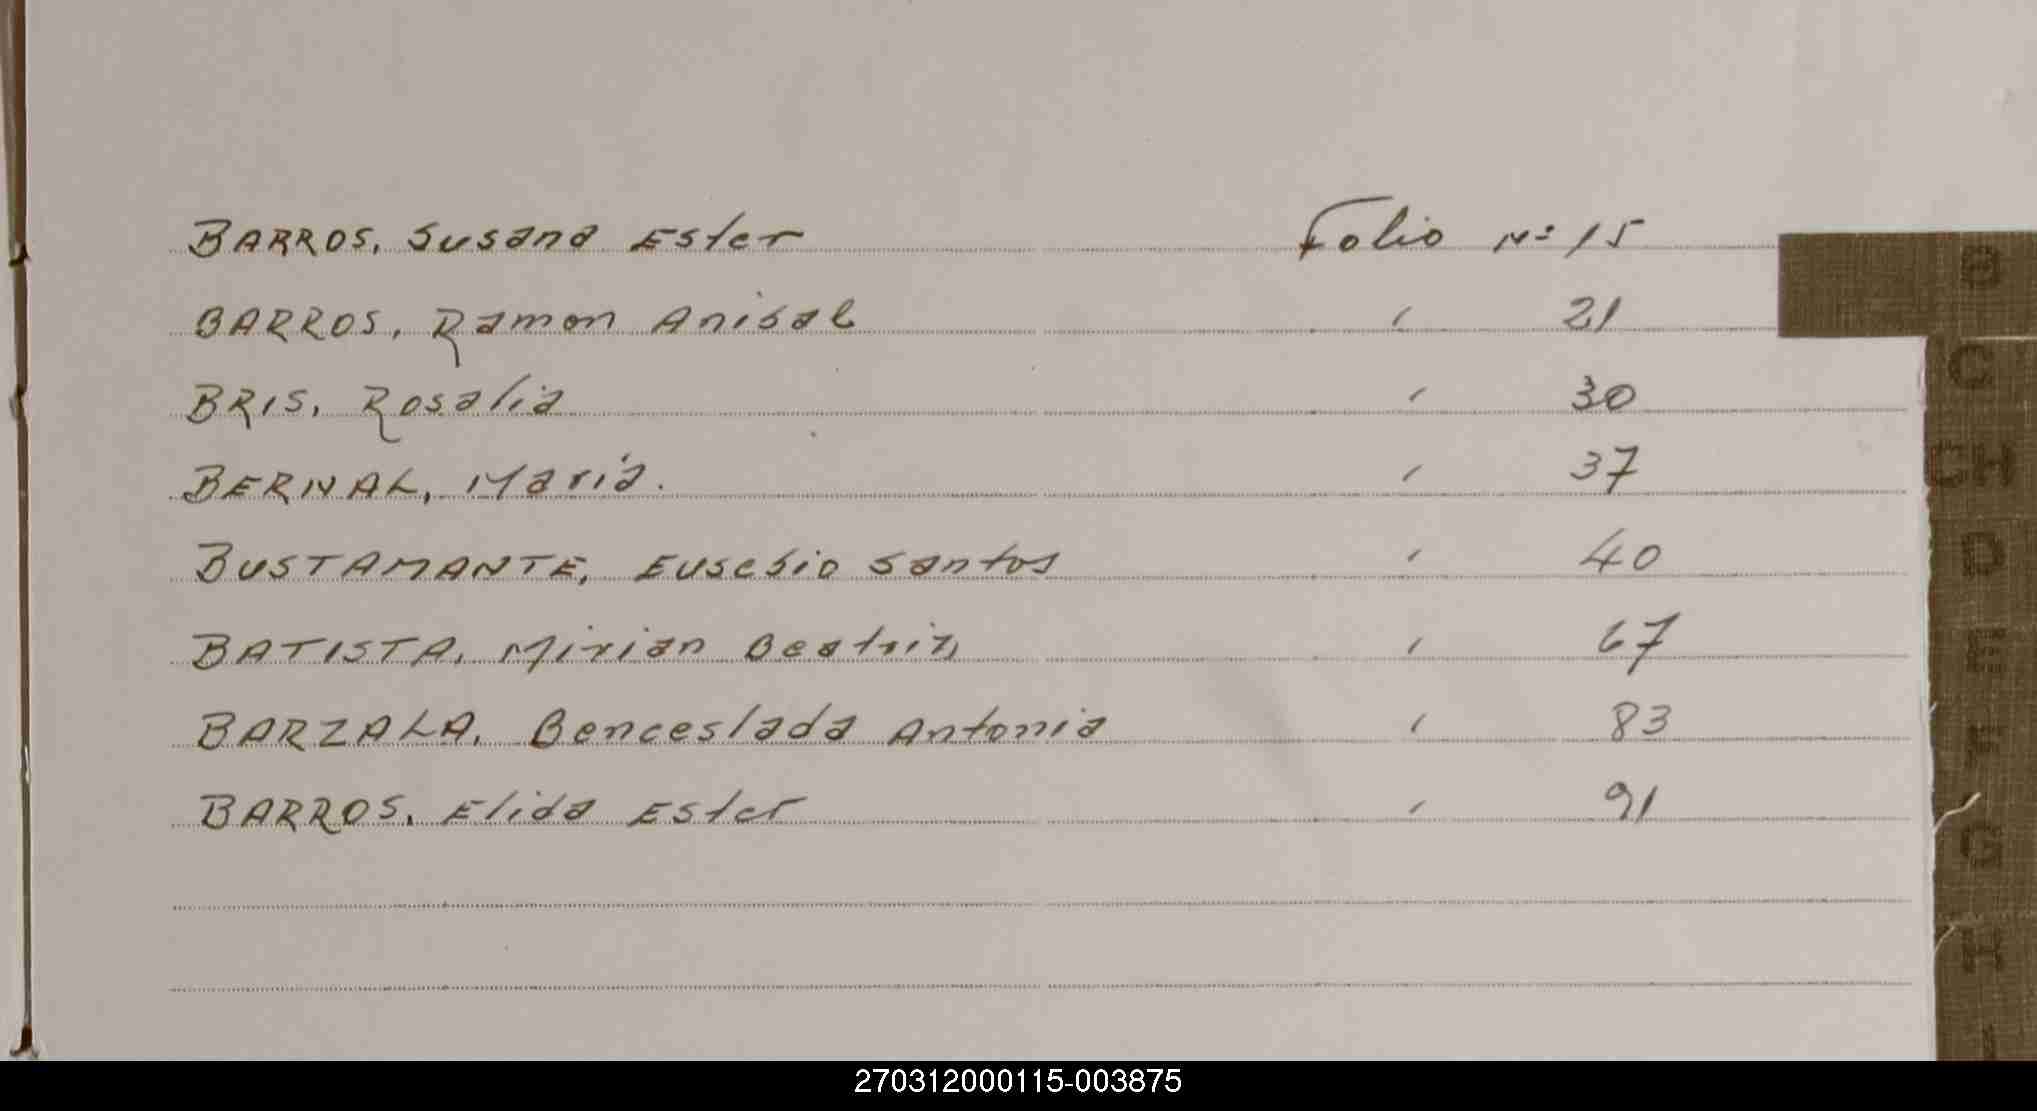 BARROS, Susana Ester Folio Nº 15
BARROS, Ramon Anibal " 21
BRIS, Rosalia " 30
BERNAL, María. " 37
BUSTAMANTE, Eusebio Santos " 40
BATISTA, Mirian Beatriz " 67
BARZALA, Benceslada Antonia " 83
BARROS, Elida Ester " 91
B
C
CH
D
E
F
G
H
I
270312000115-003875